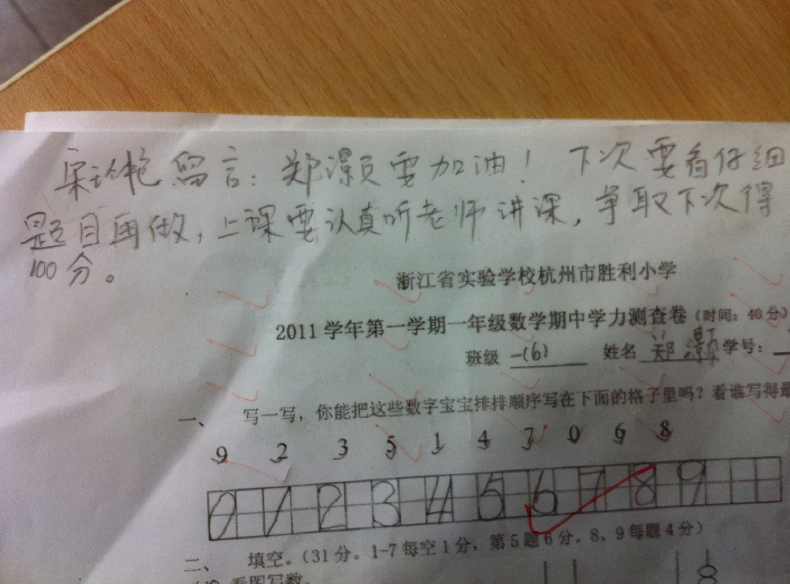 留言：郑灏员要加油！下次要看仔细
题目再做，上课要认真听老师讲课，争取下次得
100分。
浙江省实验学校杭州市胜利小学
2011学年第一学期一年级数学期中学力测查卷（时间：40分）
班级 一(6) 姓名 郑灏 学号：
一、 写一写，你能把这些数字宝宝排排顺序写在下面的格子里吗？看谁写得最
9 2 3 5 1 4 7 0 6 8
0 1 2 3 4 5 6 7 8 9
二、 填空。（31分。1-7每空1分，第5题6分。8、9每题4分）
看图写数。